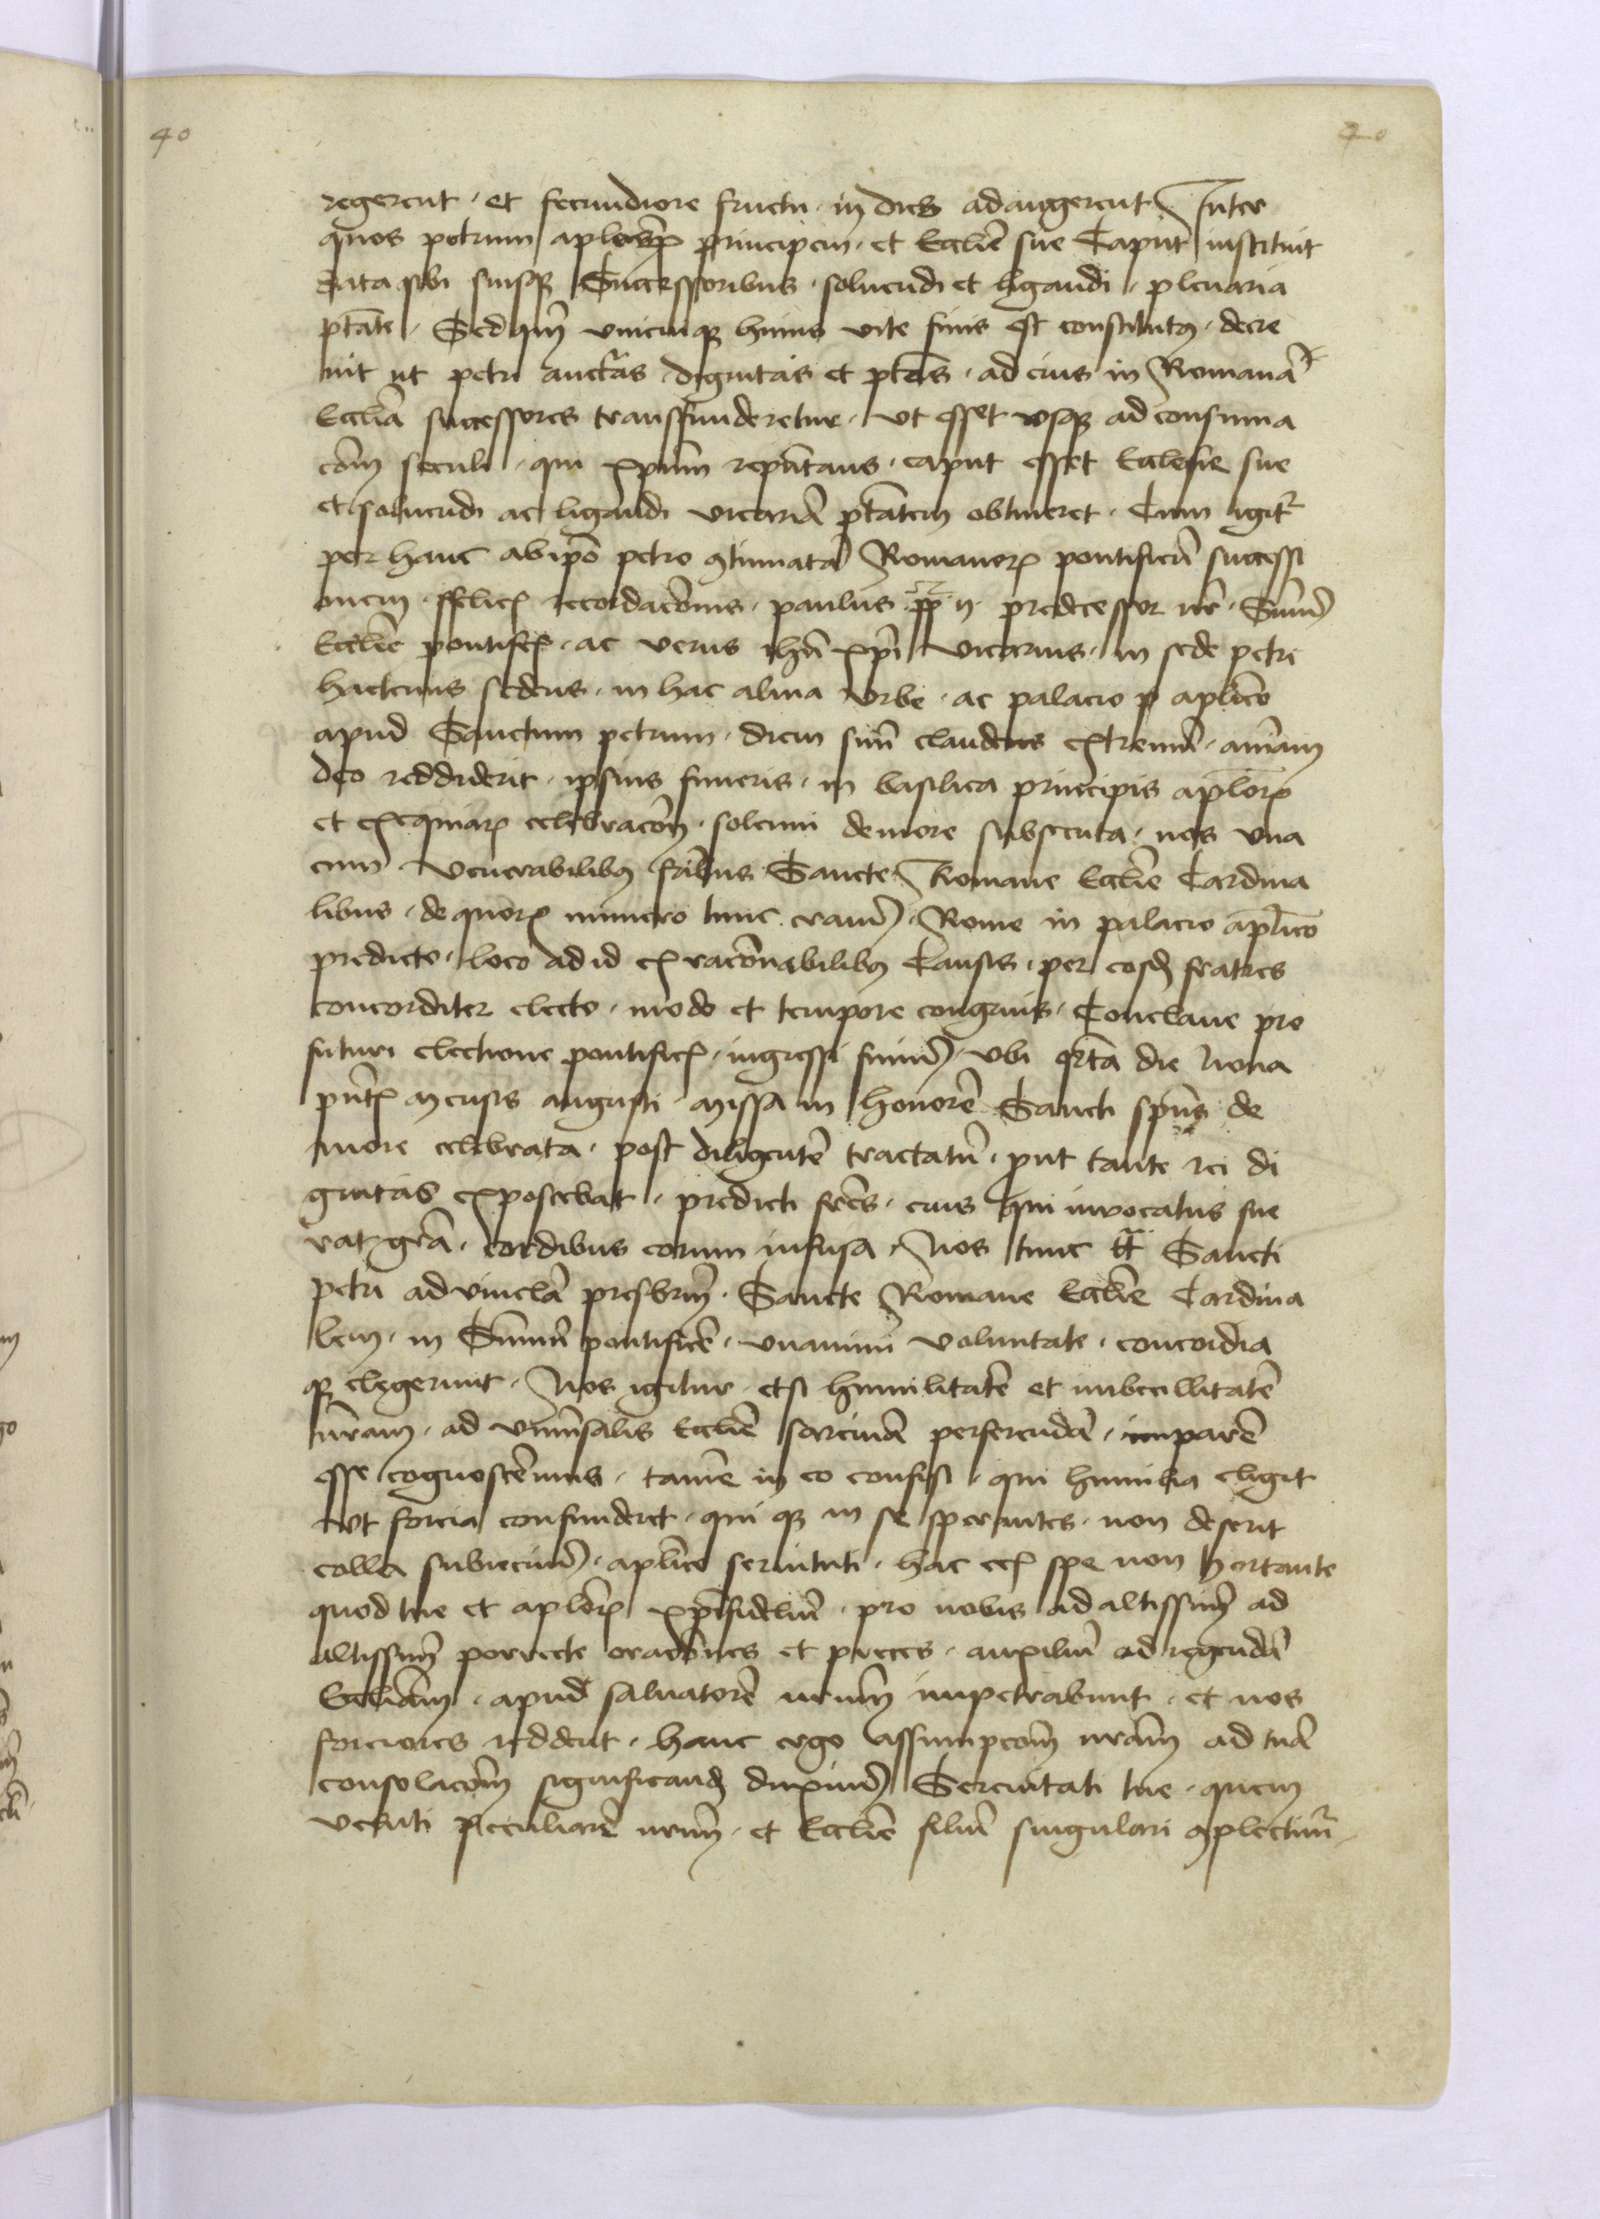 40
40
regerent · et fecundiore fructu · in dies adaugerent · Inter
quos petrum aplorꝝ principem · et Ecclie͂ sue Caput instituit
data sibi suisqꝫ Successoribus · soluendi et ligandi · plenaria
ptāte · Sed qm̄ vnicuiqꝫ huius vite finis est constitutꝰ · decre
uit ut petri auctās · dignitas et ptās · ad eius in Romanā
Eccliā successores transfunderetur · Ut esset vsqꝫ ad consuma
cōm̄ seculi · qui xp̄um rep̄ntans · caput esset Ecclesie sue
et soluendi ac ligandi vicariā ptātem obtineret · Cum igitʳ
per hanc ab ip̄o petro ꝯtinuatā Romanorꝝ pontificū successi
onem · ffelicꝭ recordacōnis · paulus pp̄ ij · predecessor nr̄ · Sum̄ꝰ
Ecclīe pontifex · ac verus ihū xp̄i vicarius · in sede petri
hactenus sedens · in hac alma Urbe · ac palacio p aplico
apud Sanctum petrum · diem suū claudens extremū · aīam
deo reddiderit · ipsius funeris · in basilica principis aplorꝝ
et exequiarꝝ celebracōm̄ · solemni de more subsecuta · nos vna
cum · venerabilibꝰ frībus Sancte Romane Ecclīe Cardina
libus · de quorꝝ numero tunc eramꝰ · Rome in palacio aplico
predicto · loco ad id ex racōnabilibꝰ Causis · per eosdꝫ fratres
concorditer electo · modo et tempore congruis · Conclaue pro
futuri electione pontificꝭ · ingressi fuimꝰ · vbi qrta die nona
pn̄tꝭ mensis augusti · missa in honorē Sancti spūs de
more celebrata · post diligentē tractatū · put tante rei di
gnitas exposcebat · predicti frēs · eius qui inuocatus fue
rat grā · cordibus eorum infusa · Nos tunc tt̄ Sancti
petri ad vincla presbrm̄ · Sancte Romane Ecclīe Cardina
lem · in Sum̄ū pontificē · vnanimi voluntate · concordia
qꝫ elegerunt · Nos igitur etsi humilitatē et imbecillitatē
nr̄am · ad vniūsalis Ecclīe sarcinā perferendā · imparē
esse cognoscēmus · tamē in eo confisi · qui humilia eligit
vt forcia confunderet · qui qꝫ in se sperantes · non deserit
colla subiecimꝰ · aplice seruituti · hac ecꝫ spe non hortante
quod tue et aplorꝝ xp̄ifideliū · pro nobis ad altissimꝫ ad
altissimꝫ porrecte oracōnes et preces · auxiliū ad regendā
Eccliām · apud saluatorē nr̄um impetrabunt · et nos
forciores reddent · hanc ergo assumpcōm̄ nr̄am ad tuā
consolacōm̄ significandꝫ duximꝰ Serenitati tue · quem
veluti peculiarē nr̄um · et Ecclīe filiū singulari ꝯplectimʳ